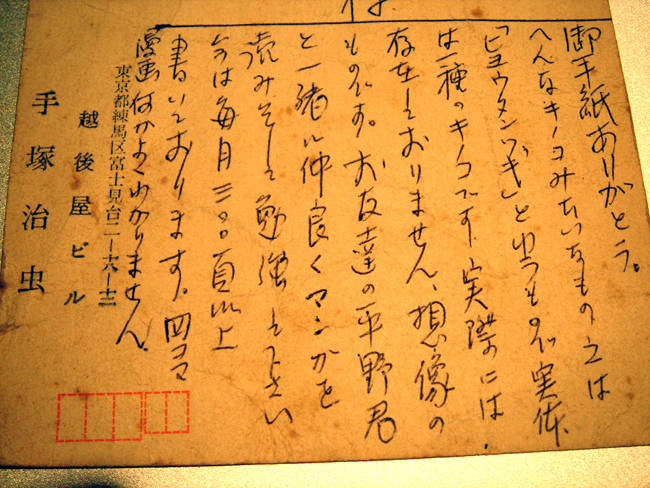 御手紙ありがとう。
へんなキノコみたいなもの之は
「ヒョウタンツギ」とゆうもので実体
は一種のキノコです、実際には
存在しておりません、想像の
ものです。お友達の平野君
と一緒に仲良くマンガを
読みそして勉強して下さい
今は毎月三〇〇頁以上
書いております。四コマ
漫画何かよくわかりません。
東京都練馬区富士見台二ー六ー三
越後屋ビル
手塚治虫